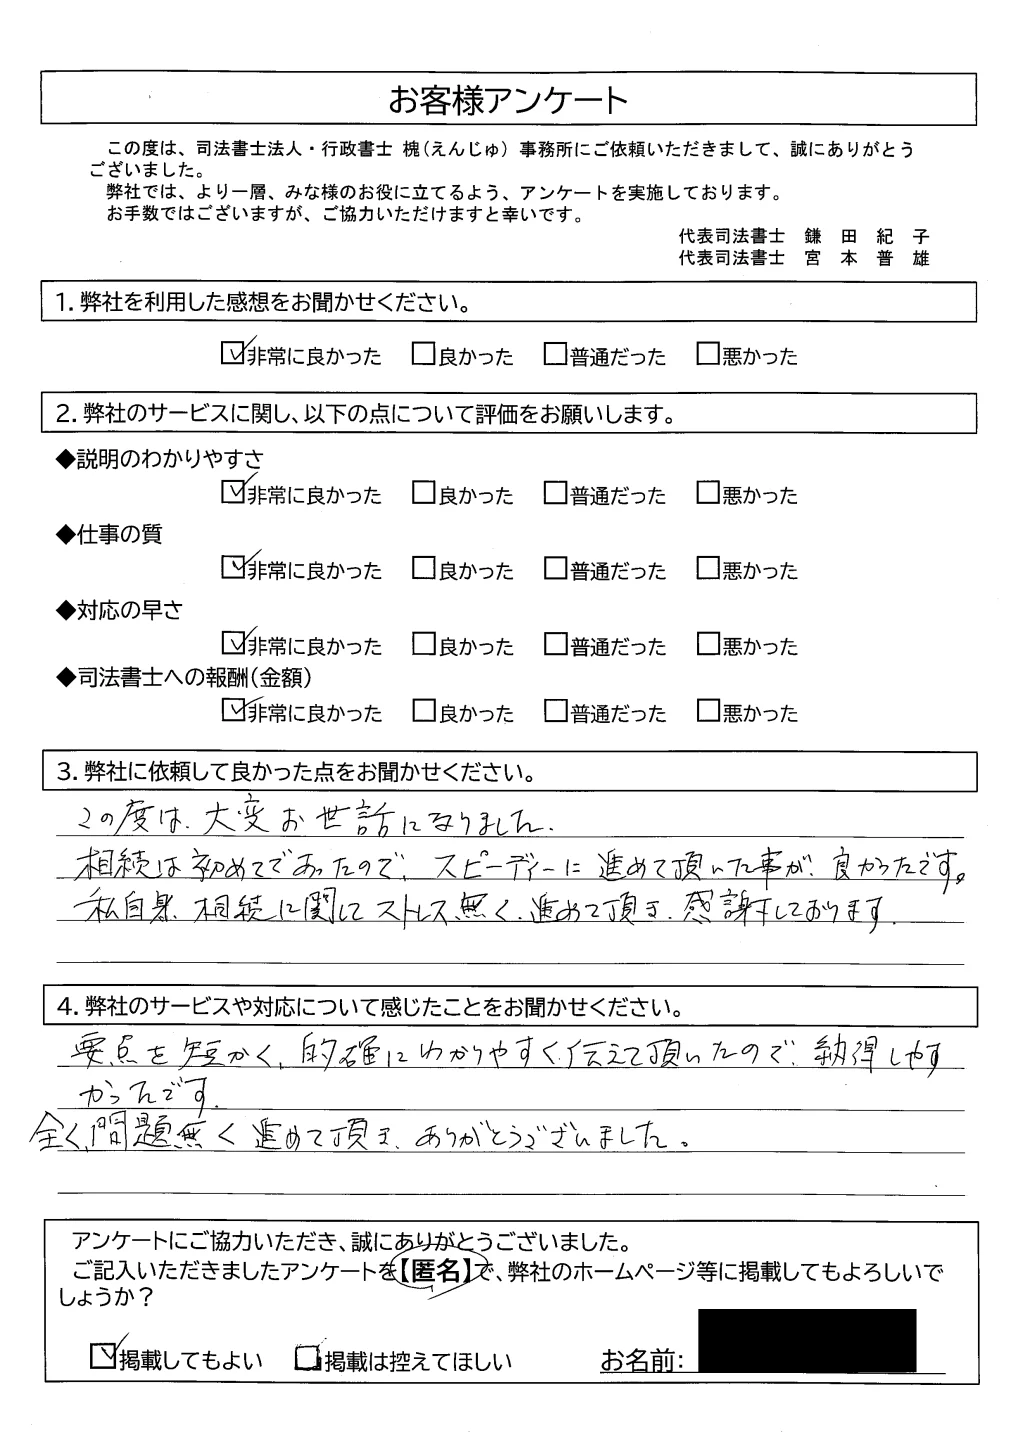 お客様アンケート
この度は、司法書士法人・行政書士 槐(えんじゅ) 事務所にご依頼いただきまして、誠にありがとう
ございました。
弊社では、より一層、みな様のお役に立てるよう、アンケートを実施しております。
お手数ではございますが、ご協力いただけますと幸いです。
代表司法書士 鎌 田 紀 子
代表司法書士 宮 本 普 雄
1. 弊社を利用した感想をお聞かせください。
☑非常に良かった □良かった □普通だった □悪かった
2. 弊社のサービスに関し、以下の点について評価をお願いします。
◆説明のわかりやすさ
☑非常に良かった □良かった □普通だった □悪かった
◆仕事の質
☑非常に良かった □良かった □普通だった □悪かった
◆対応の早さ
☑非常に良かった □良かった □普通だった □悪かった
◆司法書士への報酬(金額)
☑非常に良かった □良かった □普通だった □悪かった
3. 弊社に依頼して良かった点をお聞かせください。
この度は、大変お世話になりました.
相続は初めてであったので、スピーディーに進めて頂いた事が、良かったです。
私自身、相続に関してストレス無く、進めて頂き、感謝しております.
4. 弊社のサービスや対応について感じたことをお聞かせください。
要点を短かく、的確にわかりやすく伝えて頂いたので、納得しやす
かったです.
全く、問題無く進めて頂き、ありがとうございました。
アンケートにご協力いただき、誠にありがとうございました。
ご記入いただきましたアンケートを【匿名】で、弊社のホームページ等に掲載してもよろしいで
しょうか？
☑掲載してもよい □掲載は控えてほしい お名前: